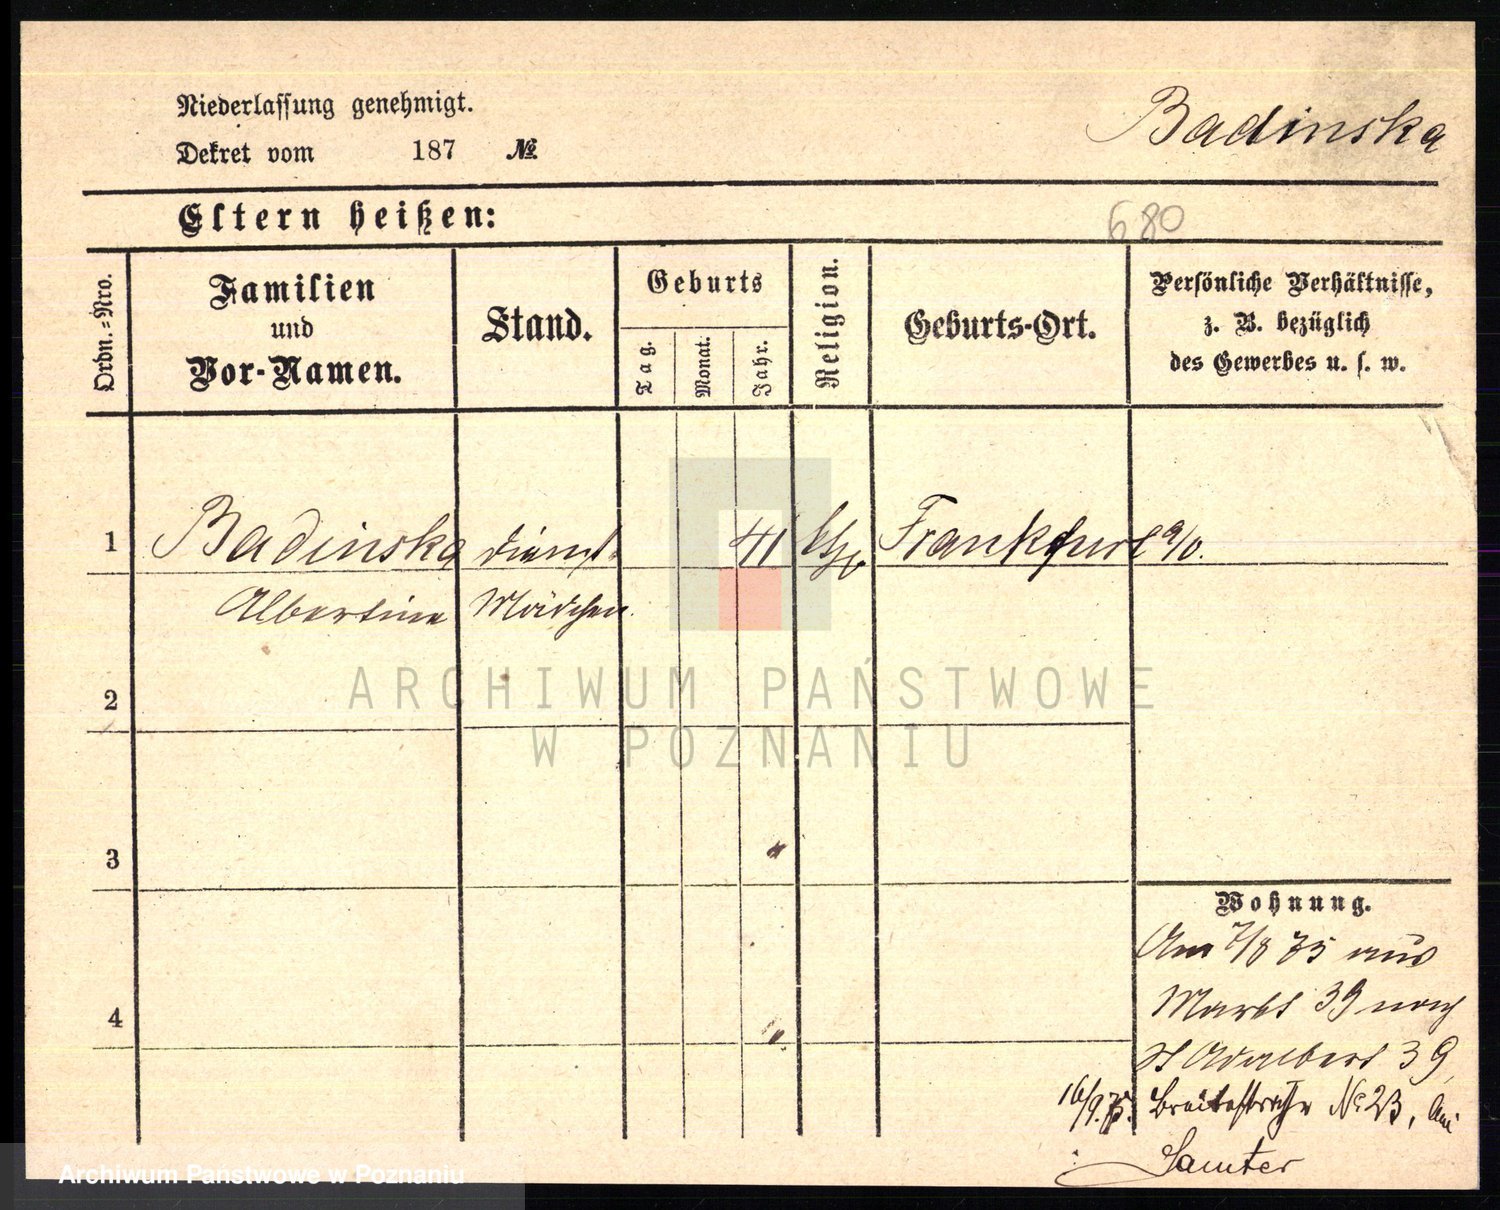 Niederlassung genehmigt.
Dekret vom 187 №
Badinska
Eltern heißen:
680
Ordn.=Nro.
Familien
und
Vor-Namen.
Stand.
Geburts
Tag.
Monat.
Jahr.
Religion.
Geburts-Ort.
Persönliche Verhältnisse,
z. B. bezüglich
des Gewerbes u. s. w.
1
Badinska
Albertine
Dienst
Mädchen
41
Frankfurt a/O.
ARCHIWUM PAŃSTWOWE
W POZNANIU
2
3
4
Wohnung.
Am 7/8 75 aus
Markt 39 nach
St Adalbert 39
16/9.75. Breitestraße № 23, bei
Samter
Archiwum Państwowe w Poznaniu